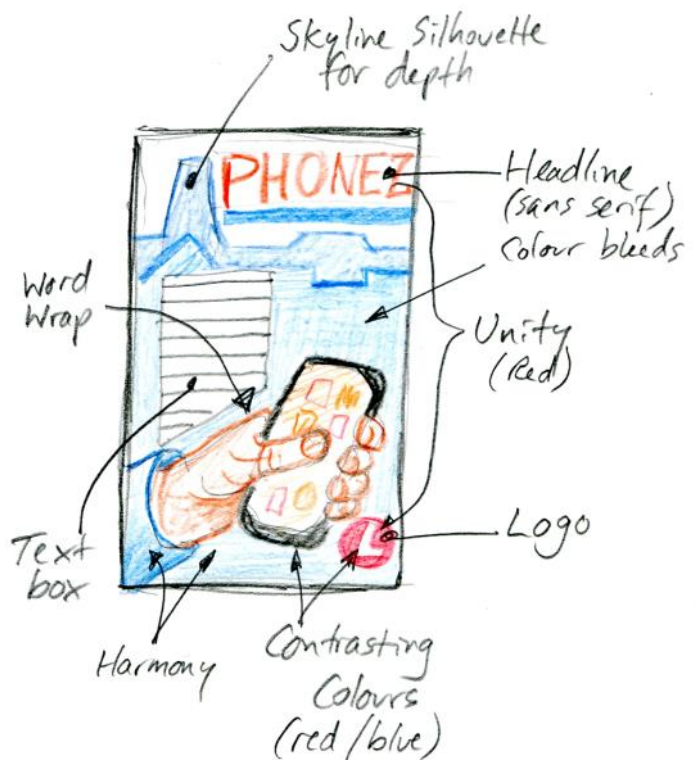 Skyline Silhouette
for depth
PHONEZ
Headline
(sans serif)
Colour bleeds
Word
Wrap
Unity
(Red)
L
Logo
Text
box
Harmony
Contrasting
Colours
(red/blue)